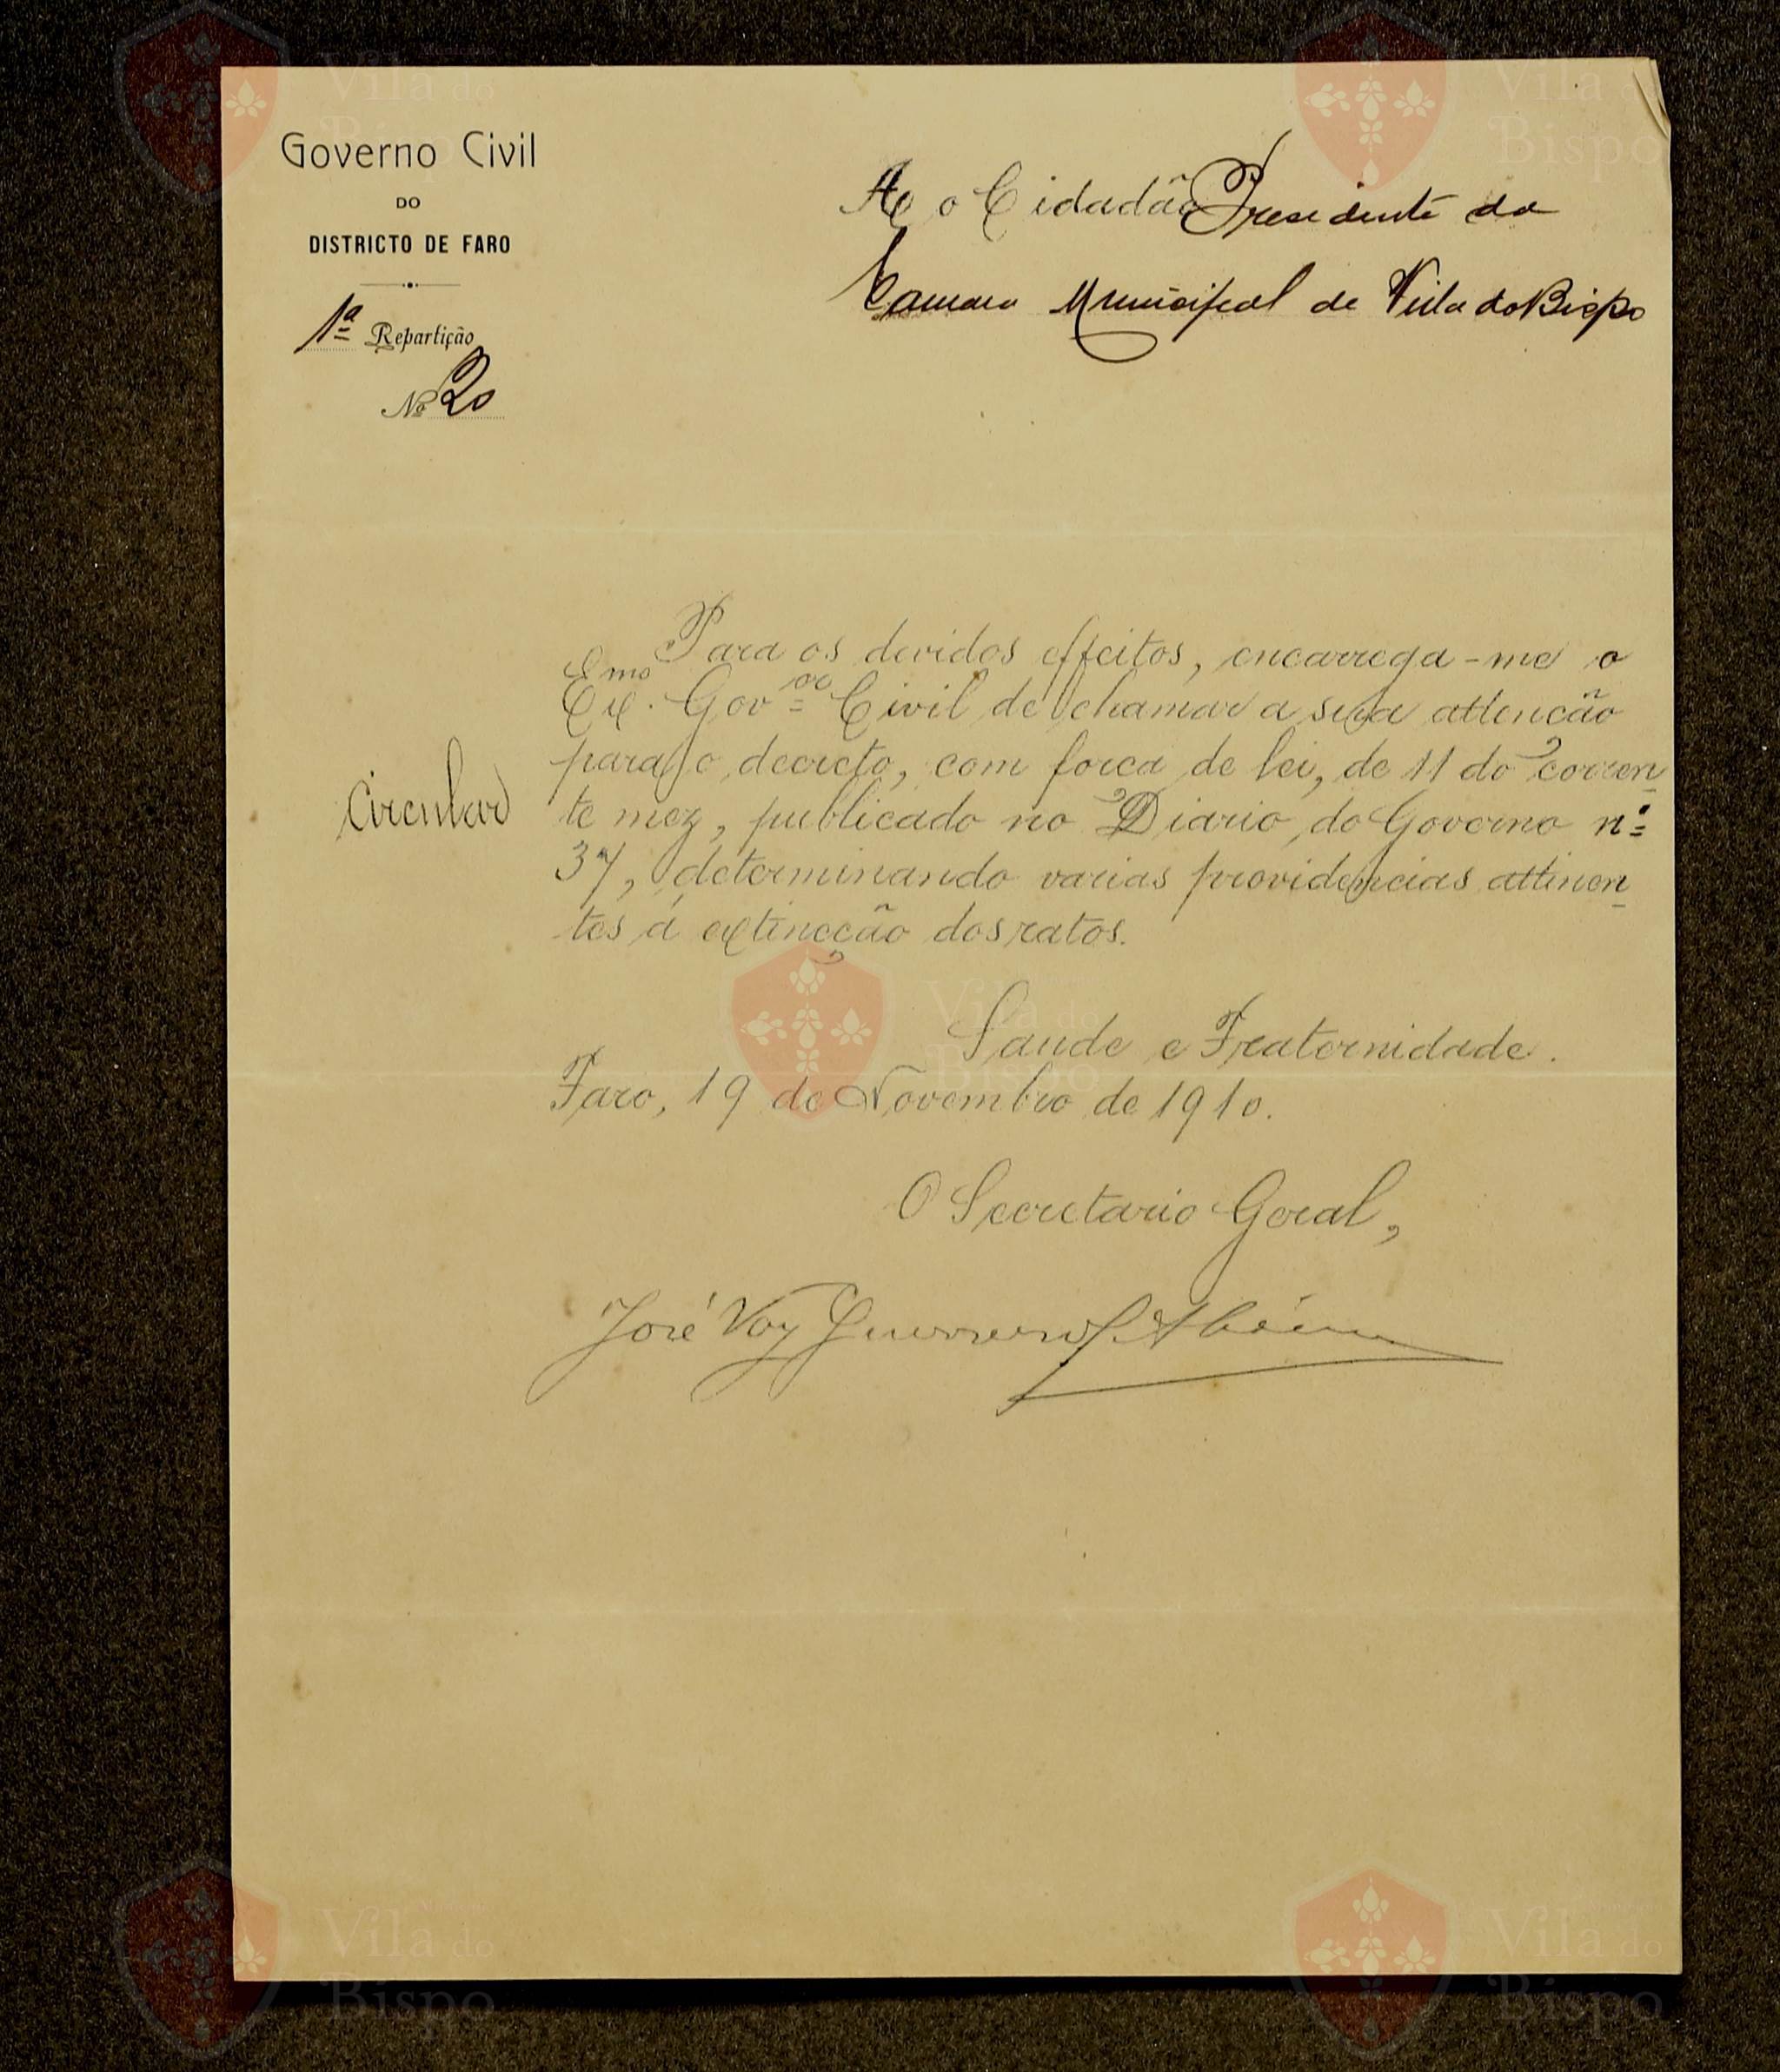 Governo Civil
DO
DISTRICTO DE FARO
1ª Repartição
Nº 20
Ao o Cidadão Presidente da
Camara Municipal de Villa do Bispo
Para os devidos effeitos, encarrega-me o
Exmo. Govor Civil de chamar a sua attenção
para o decreto, com força de lei, de 11 do corren-
Circular
te mez, publicado no Diario do Governo nº
37, determinando varias providencias attinen-
tes á extincção dos ratos.
Saude e Fraternidade.
Faro, 19 de Novembro de 1910.
O Secretario Geral,
José Vaz Guerreiro
Vila do
Bispo
Vila do
Bispo
Vila do
Bispo
Vila do
Bispo
Vila do
Bispo